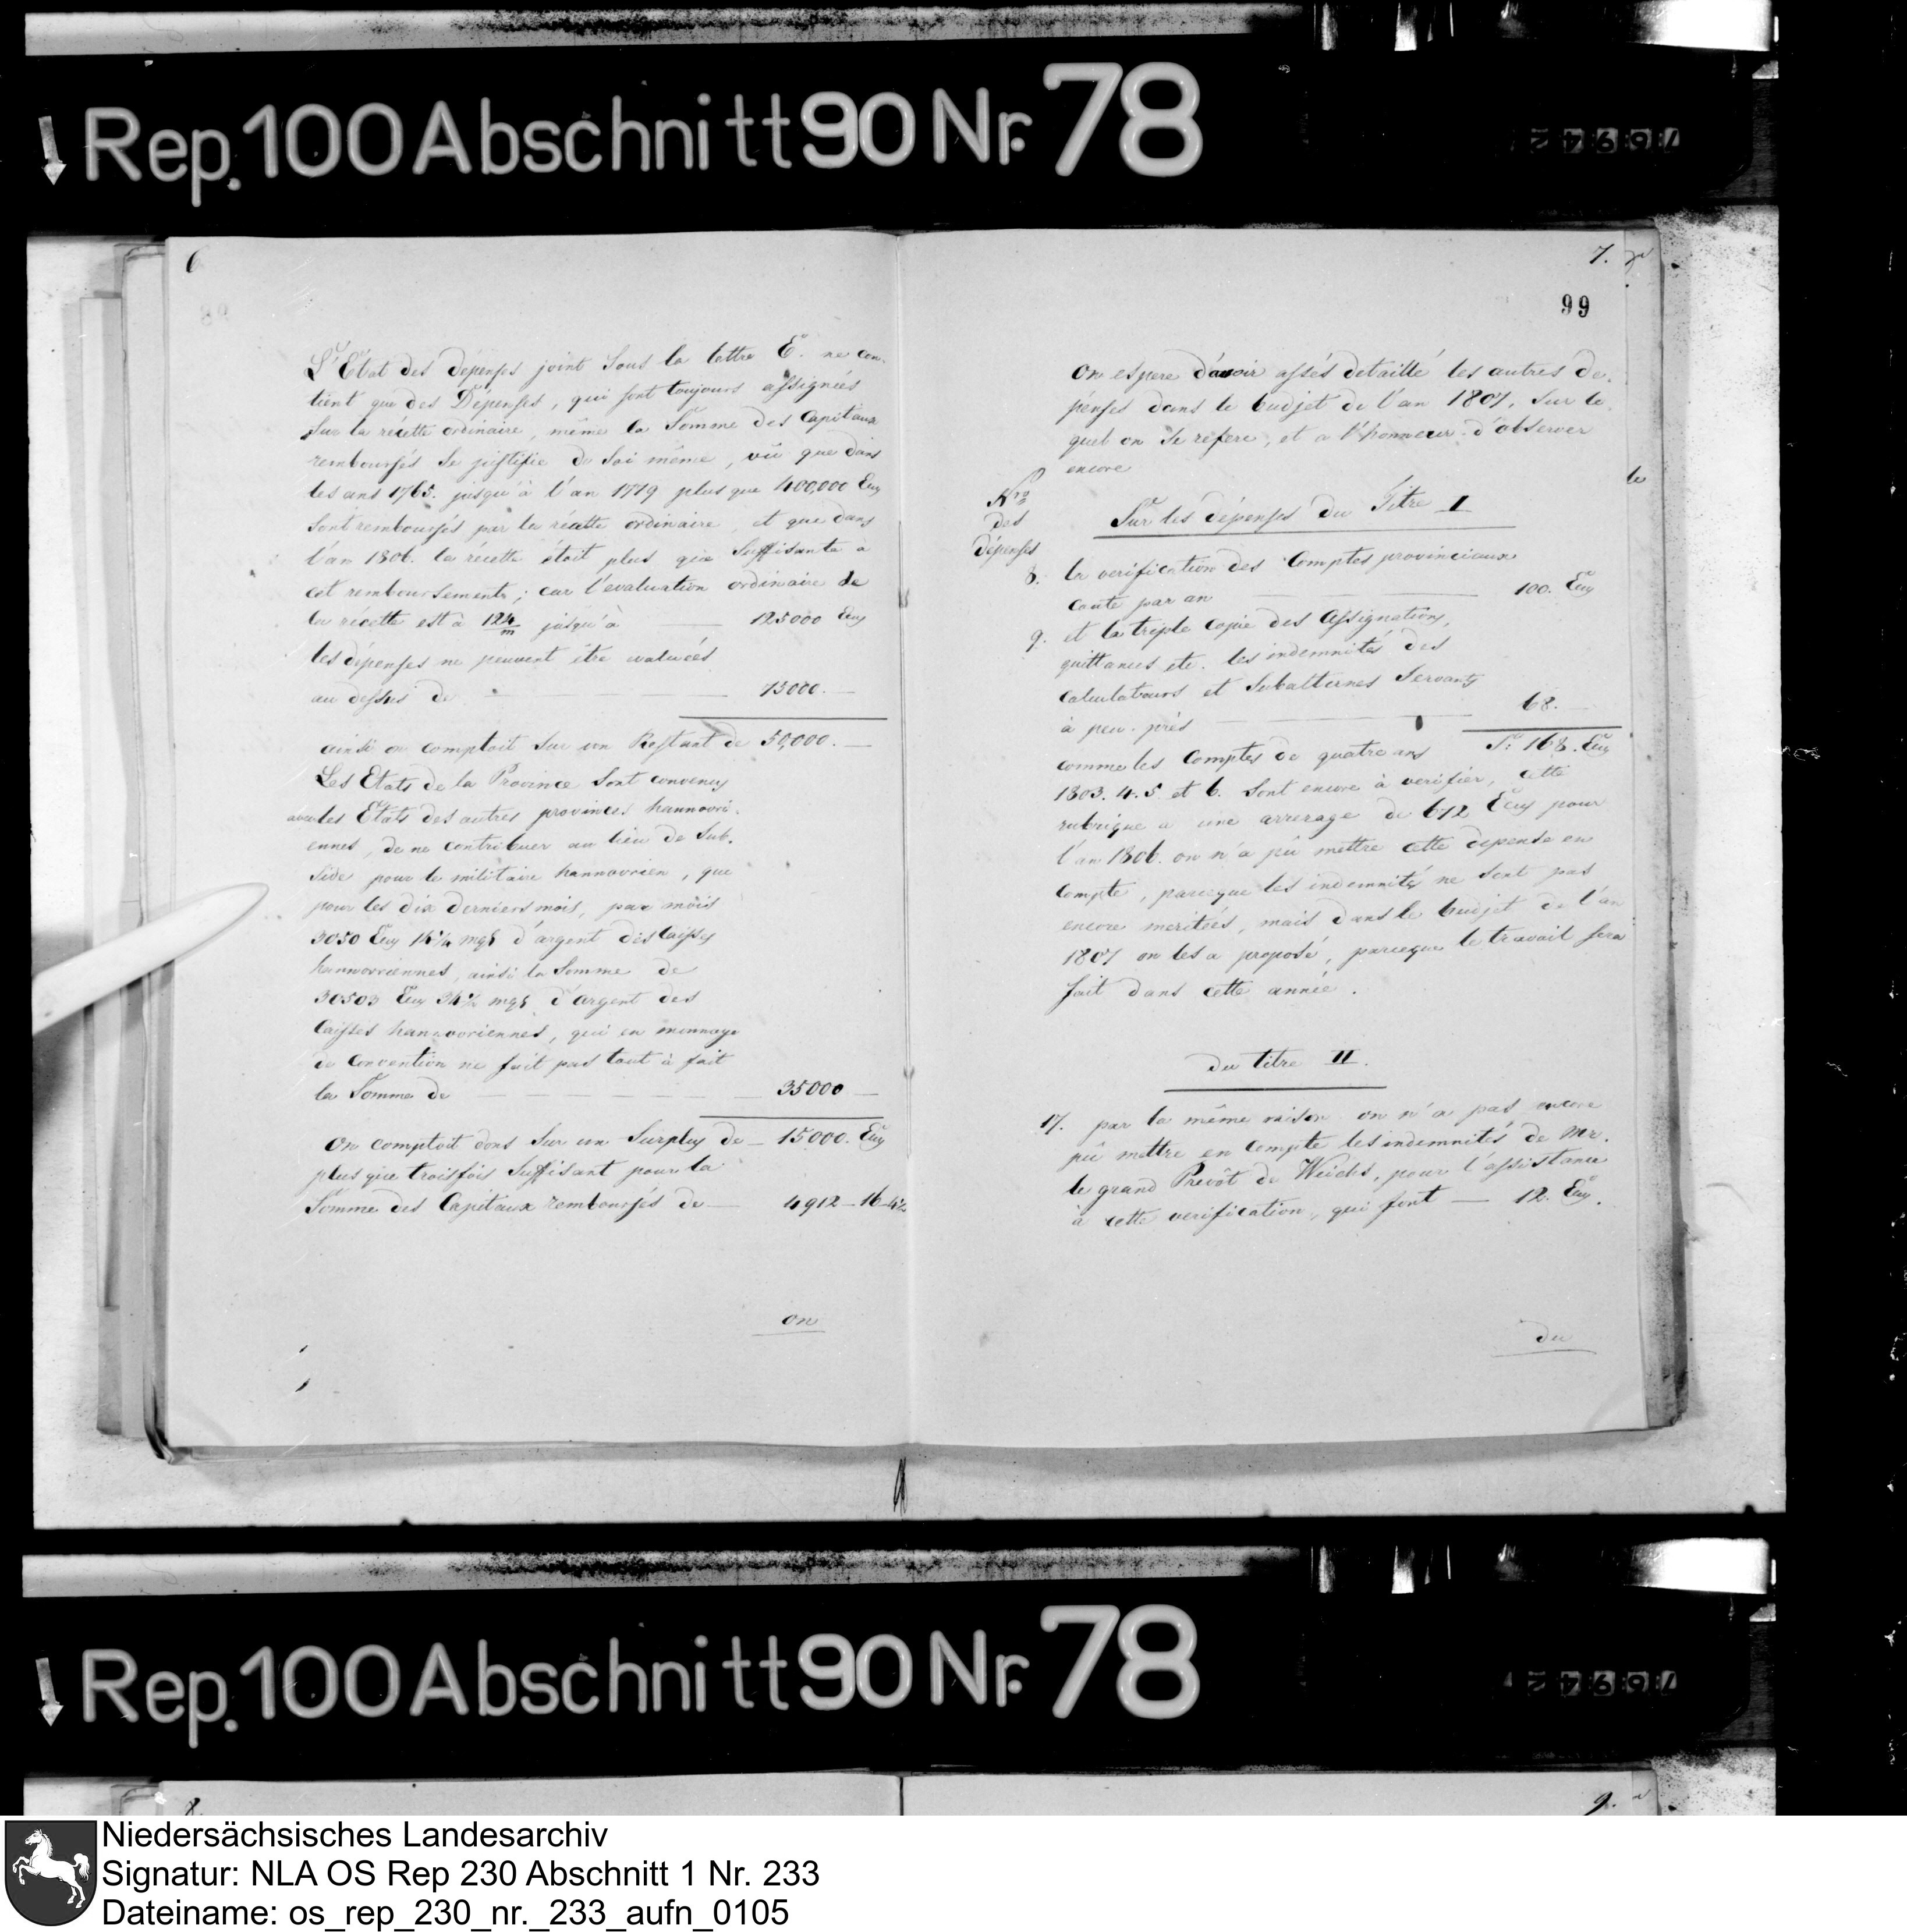 Rep. 100 Abschnitt 90 Nr. 78
6
L'Etat des depenses joint sous la lettre E. ne con-
tient que des Dépenses, qui sont toujours assignées
sur la récette ordinaire, même la Somme des Capitaux
remboursés se justifie de soi même, vû que dans
les ans 1765. jusqu'à l'an 1779 plus que 400,000 Ecus
sont remboursés par la récette ordinaire, et que dans
l'an 1806. la récette étoit plus que suffisante à
cet remboursement; car l'evaluation ordinaire de
la récette est à 124/m jusqu'à 125000 Ecus
les dépenses ne peuvent être evaluées
au dessus de 75000.
ainsi on comptoit sur un Restant de 50,000.
Les Etats de la Province sont convenus
avec les Etats des autres provinces hannovri-
ennes, de ne contribuer au lieu de Sub-
side pour le militaire hannovrien, que
pour les dix derniers mois, par mois
3050 Ecus mgs d'argent des caisses
hannovriennes, ainsi la Somme de
30503 Ecus mgs d'argent des
Caisses hannovriennes, qui en monnaye
de Convention ne fait pas tout à fait
la Somme de 35000
On comptoit donc sur un Surplus de 15000. Ecus
plus que trois fois suffisant pour la
Somme des Capitaux remboursés de 4912 - 16
on
7.
99
On espere d'avoir assés detaillé les autres dé-
penses dans le budjet de l'an 1807, sur le-
quel on se réfere, et a l'honneur d'observer
encore
le
Nro
des
dépenses
Sur les dépenses du Titre I
8. la verification des Comptes provinciaux
coute par an 100. Ecus
9. et la triple copie des Assignations,
quittances etc. les indemnités des
Calculateurs et Subalternes Servants
à peu près 68.
S: 168. Ecus
comme les Comptes de quatre ans
1803. 4. 5 et 6. sont encore à verifier, cette
rubrique a une arrerage de 672 Ecus pour
l'an 1806. on n'a pû mettre cette depense en
Compte, parceque les indemnités ne sont pas
encore meritées, mais dans le budjet de l'an
1807 on les a proposé, parceque le travail sera
fait dans cette année.
du titre II.
17. par la même raison on n'a pas encore
pû mettre en compte les indemnités de Mr.
le grand Prevôt de Weichs, pour l'assistance
à cette verification, qui font 12. Ecus.
du
Rep. 100 Abschnitt 90 Nr. 78
9.
Niedersächsisches Landesarchiv
Signatur: NLA OS Rep 230 Abschnitt 1 Nr. 233
Dateiname: os_rep_230_nr._233_aufn_0105